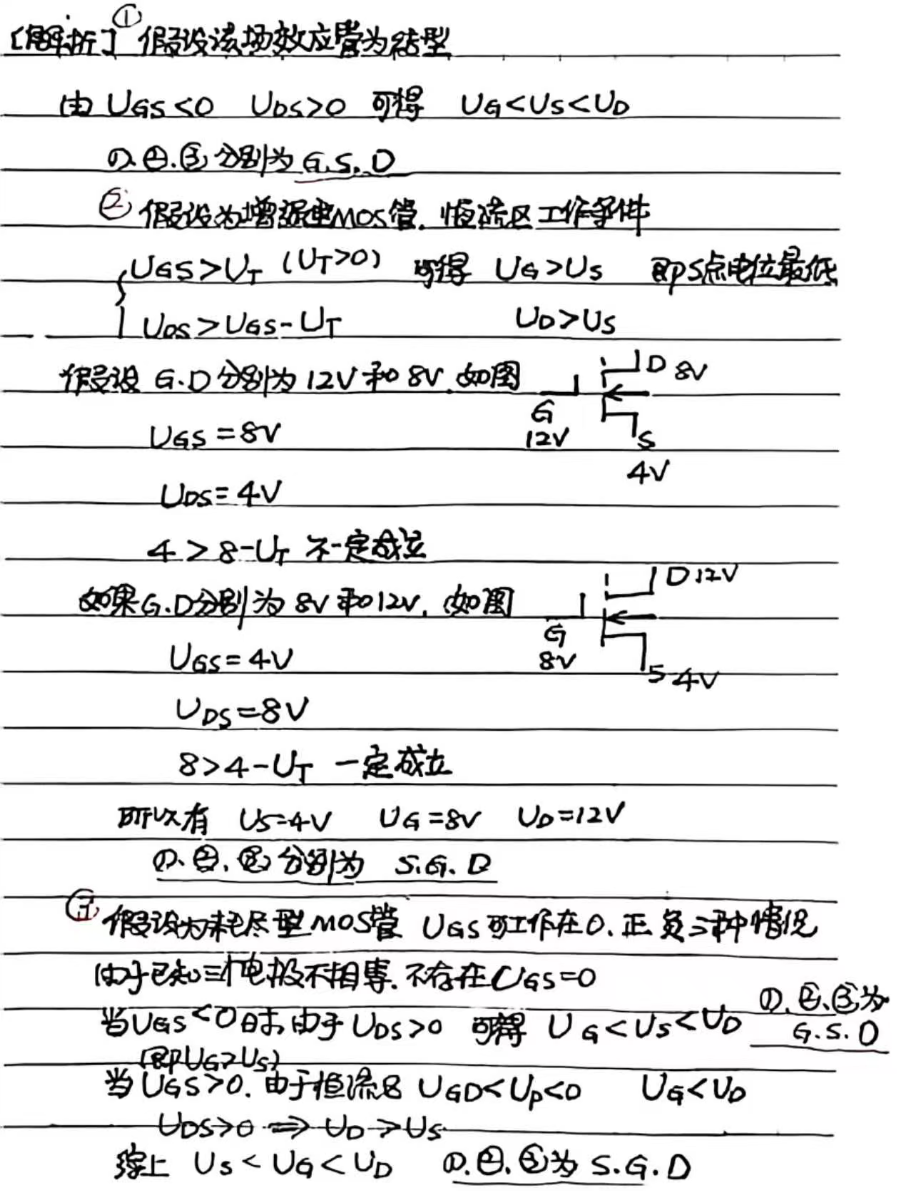 [解析] ① 假设该场效应管为结型
由 UGS<0 UDS>0 可得 UG<US<UD
①.②.③分别为 G.S.D
② 假设为增强型MOS管. 恒流区工作条件
UGS>UT (UT>0) 可得 UG>US 即S点电位最低
UDS>UGS-UT UD>US
假设 G.D分别为 12V和 8V. 如图
D 8V
G
12V
S
4V
UGS=8V
UDS=4V
4>8-UT 不一定成立
如果G.D分别为 8V和12V. 如图
D 12V
G
8V
S 4V
UGS=4V
UDS=8V
8>4-UT 一定成立
所以有 US=4V UG=8V UD=12V
①.②.③分别为 S.G.D
③ 假设为耗尽型MOS管 UGS可工作在0.正.负三种情况
由于已知三个电极不相等.不存在UGS=0
当UGS<0时.由于UDS>0 可得 UG<US<UD ①.②.③为 G.S.D
(即UG>US)
当UGS>0.由于恒流区 UGD<UP<0 UG<UD
UDS>0 ⇒ UD>US
综上 US<UG<UD ①.②.③为 S.G.D